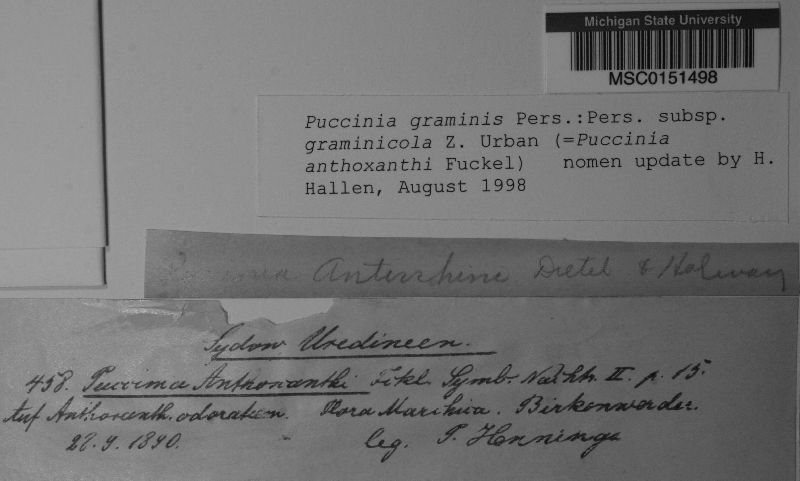 Michigan State University
MSC0151498
Puccinia graminis Pers.:Pers. subsp.
graminicola Z. Urban (=Puccinia
anthoxanthi Fuckel) nomen update by H.
Hallen, August 1998
Antirrhini Dietel & Holway
Sydow Uredineen.
458. Puccinia Anthoxanthi Fckl. Symb. Nachtr. II. p. 15.
Auf Anthoxanth. odoratum. Flora Marchica. Birkenwerder.
28.9.1890. leg. P. Hennings